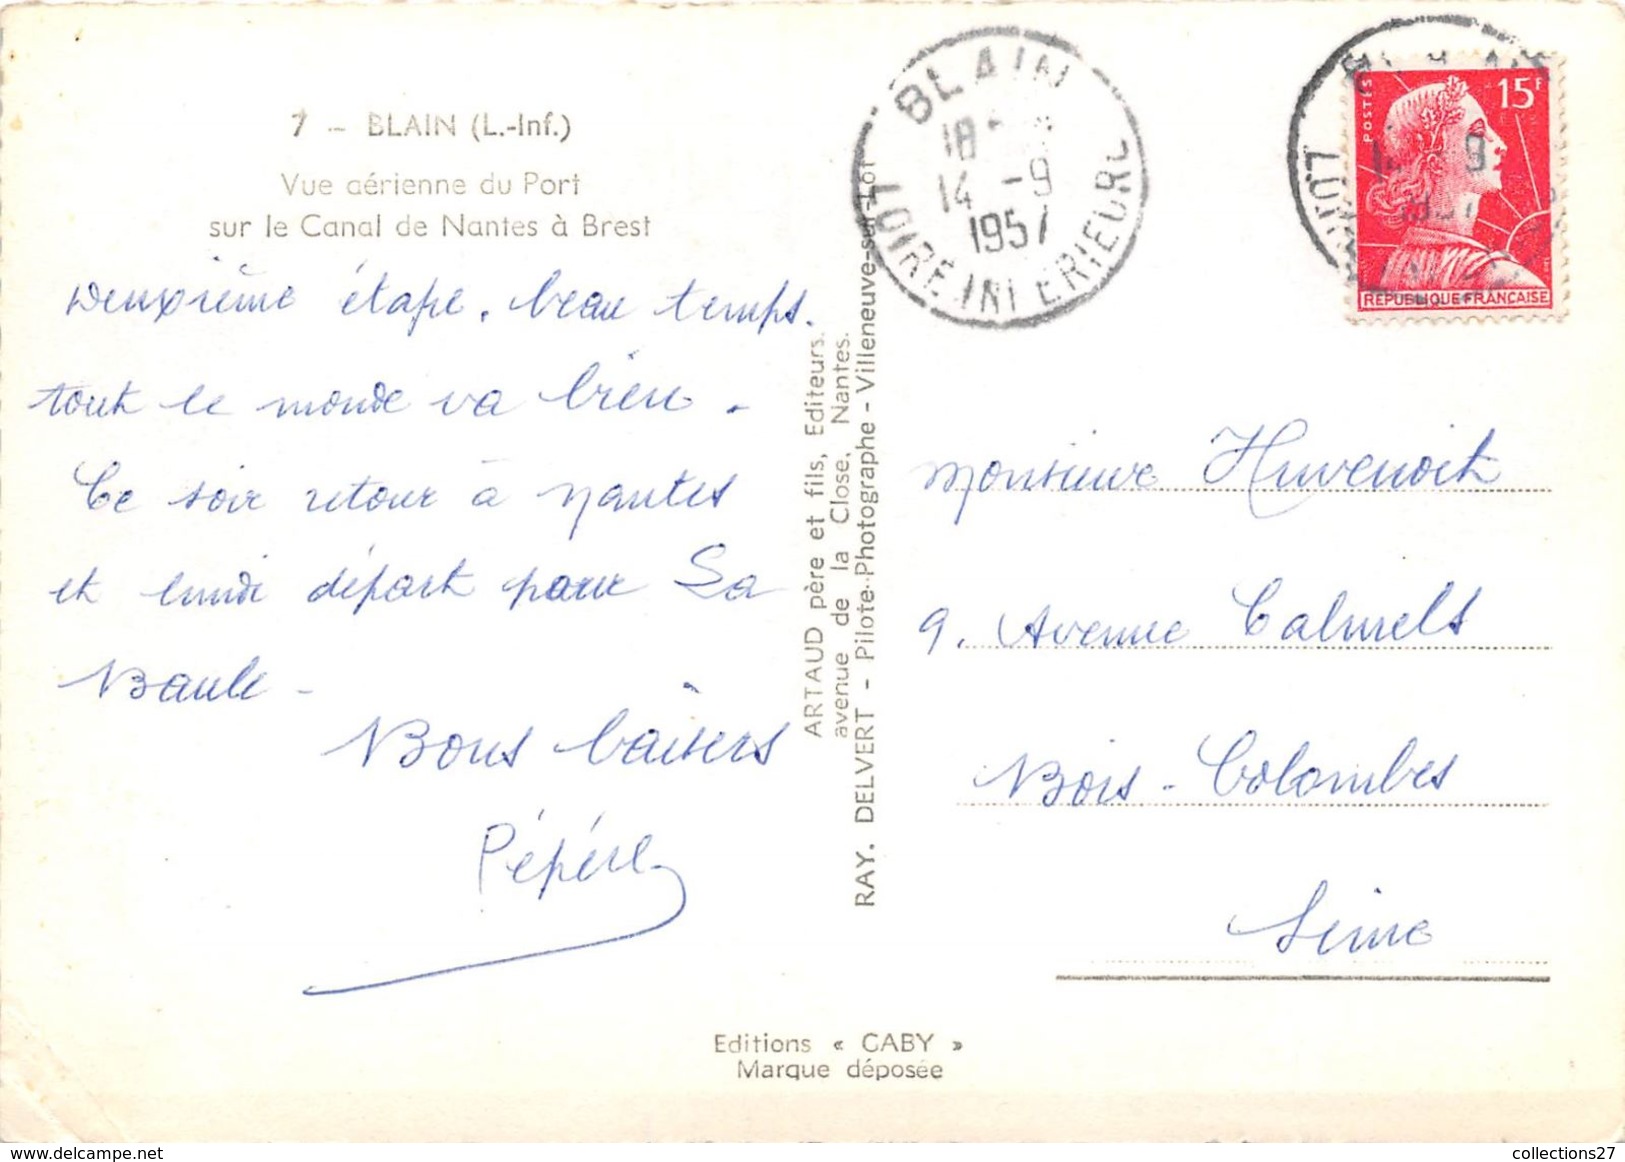 7 - BLAIN (L.-Inf.)
Vue aérienne du Port
sur le Canal de Nantes à Brest
Deuxième étape. beau temps.
tout le monde va bien.
Ce soir retour à Nantes
et lundi départ pour La
Baule.
Bons baisers
Pépère
ARTAUD père et fils, Editeurs.
avenue de la Close, Nantes.
RAY. DELVERT - Pilote-Photographe - Villeneuve-sur-Lot
BLAIN
18
14 -9
1957
LOIRE INFERIEURE
POSTES
15F
REPUBLIQUE FRANÇAISE
Monsieur Huvenoit
9. Avenue Calmels
Bois-Colombes
Seine
Editions « GABY »
Marque déposée
collections27